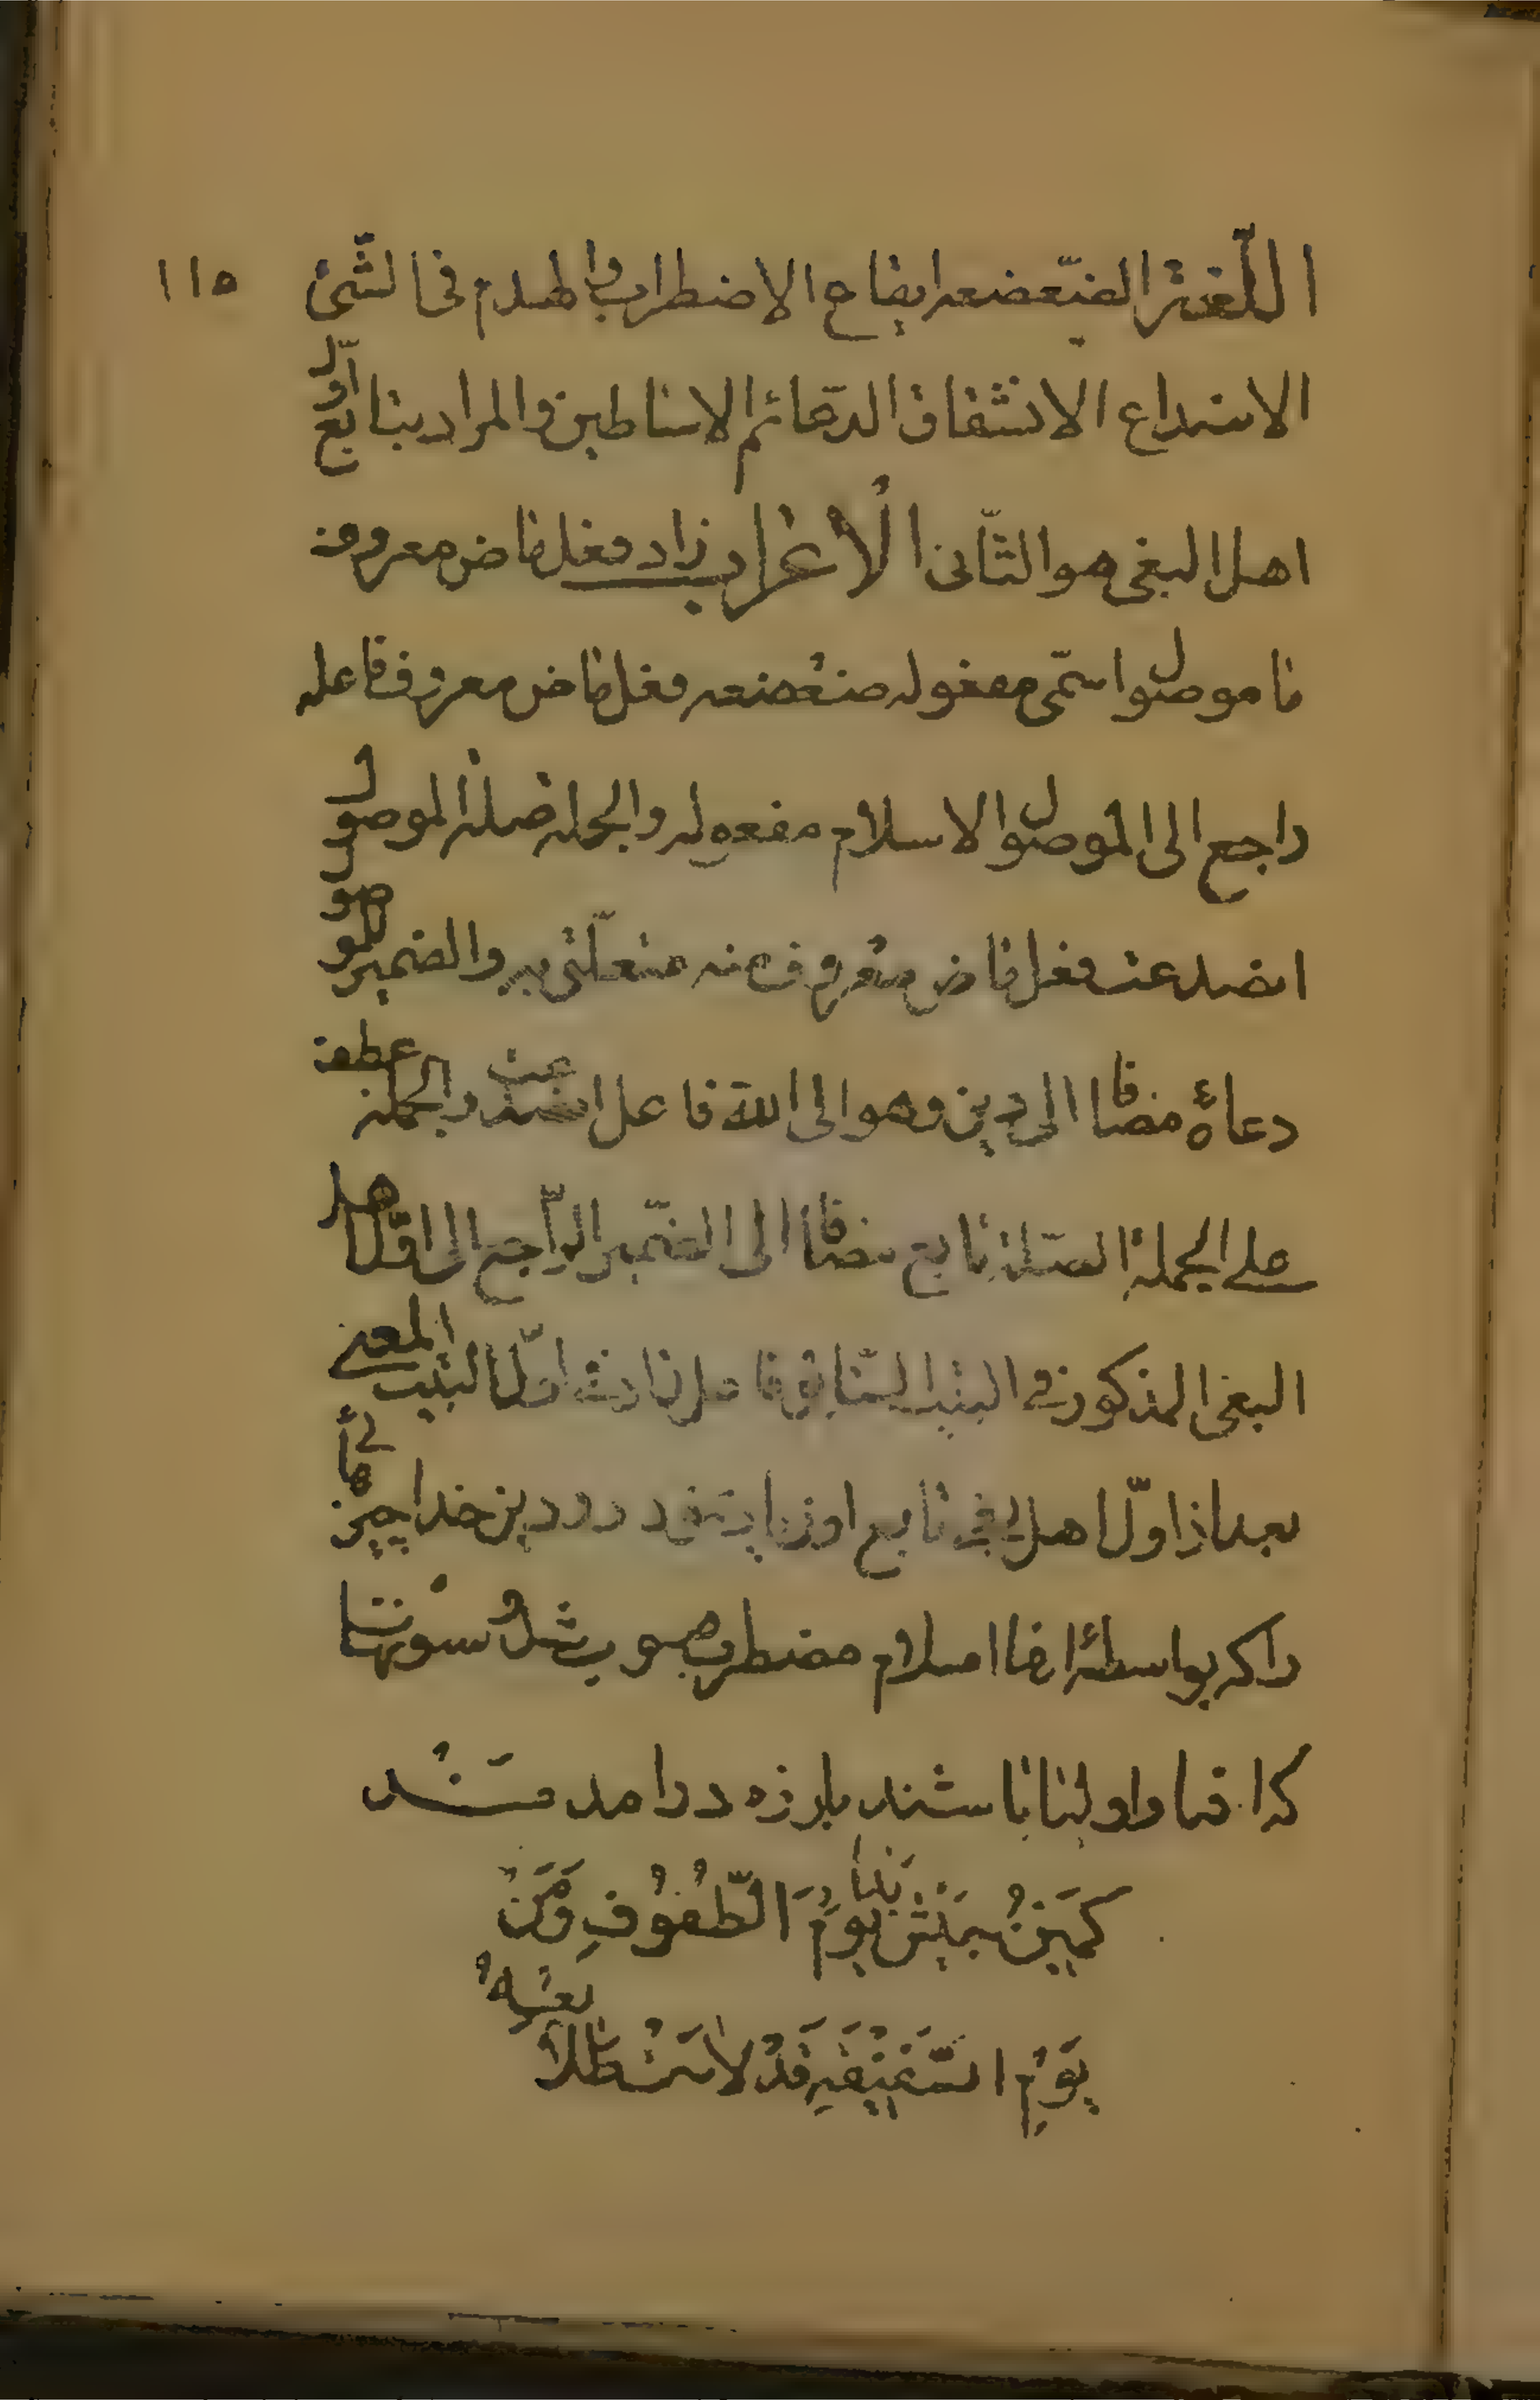 اللّغة الضّعضعه ایقاع الاضطراب والهدم فی الشّیٔ ١١٥
الانصداع الانشقاق الدّعائم الاساطین والمراد بتابع اوّل
اهل البغی هو الثّانی الْاعْراب زاد فعل ماض معروف
ما موصول اسمّی مفعوله ضعضعه فعل ماض معروف فاعله
راجع الی الموصول والاسلام مفعوله والجمله صلة الموصول
انصدعت فعل ماض معروف منه متعلّق به والضمیر للموصول
دعائم مضاف الی دین وهو الی اللّه فاعل انصدعت والجملة عطف
علی الجملة الصّلة تابع مضاف الی الضّمیر الرّاجع الی اوّل اهل
البغی المذکور فی البیت السّابق فاعل زاد فی اوّل البیت المعنی
بعد از اوّل اهل بغی تابع او زیاد در دین خدا چیز هائی
را که بواسطهٔ انها اسلام مضطرب شد و ستونهایش
که اقیا و اولیا باشند بلرزه در امدند
کمین بجیش بدا یوم الطّفوف ومن
یوم السّقیفة قد لاحت طلایعه